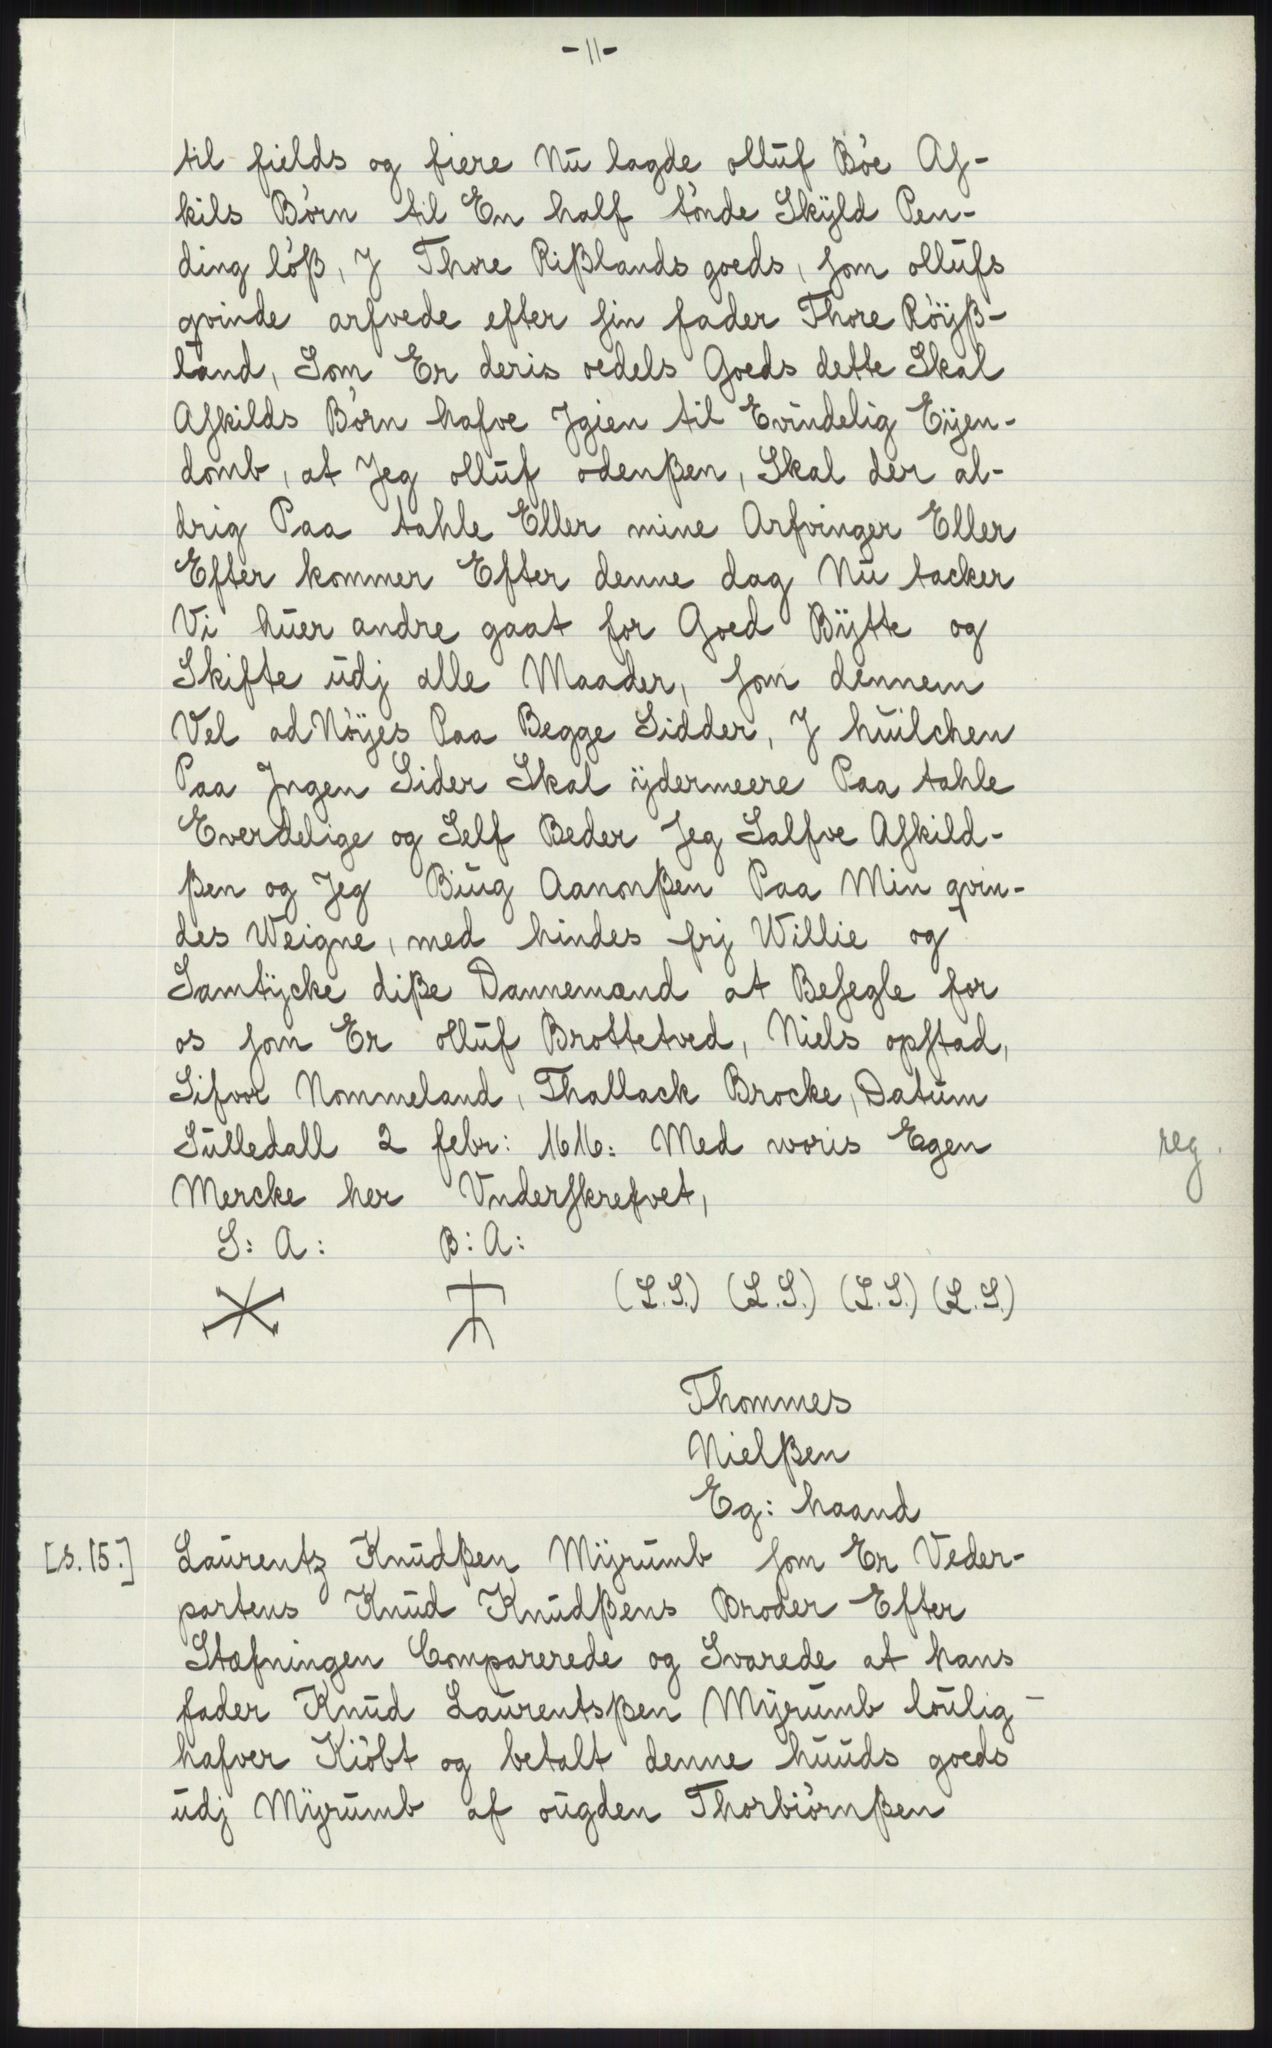 -11-
til fields og fiere Nu lagde olluf Böe As-
kils Börn til En half tönde Skÿld Pen-
ding löß, J Thore Rißlands goeds, som ollufs
qvinde arfvede efter sin fader Thore Röÿß-
land, Som Er deris oedels Goeds dette Skal
Askilds Börn hafve Jgien til Evindelig Eÿen-
domb, at Jeg olluf odenßen, Skal der al-
drig Paa tahle Eller mine Arfvinger Eller
Efter kommer Efter denne dag Nu tacker
Vi huer andre gaat for Goed Bÿtte og
Skifte udj alle Maader, som dennem
Vel ad Nöÿes Paa Begge Sidder, J huilchen
Paa Jngen Sider Skal ÿdermeere Paa tahle
Everdelige og Self Beder Jeg Salfve Askild-
ßen og Jeg Biug Aanonßen Paa Min qvin-
des Weigne, med hindes frj Willie og
Samtÿcke diße Dannemænd at Besegle for
os som Er olluf Brottetved, Niels opstad,
Sifvor Nommeland, Thallack Brocke, Datum
Sulledall 2 febr: 1616: Med woris Egen
reg.
Mercke her Vnderskrefvet,
S: A: B: A:
(L.S.) (L.S.) (L.S.) (L.S.)
Thommes
Nielßen
Eg: haand
[s. 15.] Laurentz Knudßen Mÿrumb som Er Veder-
partens Knud Knudßens Broder Efter
Stæfningen Comparerede og Svarede at hans
fader Knud Laurentsßen Mÿrumb loulig-
hafver Kiöbt og betalt denne huuds goeds
udj Mÿrumb af ougden Thorbiörnßen